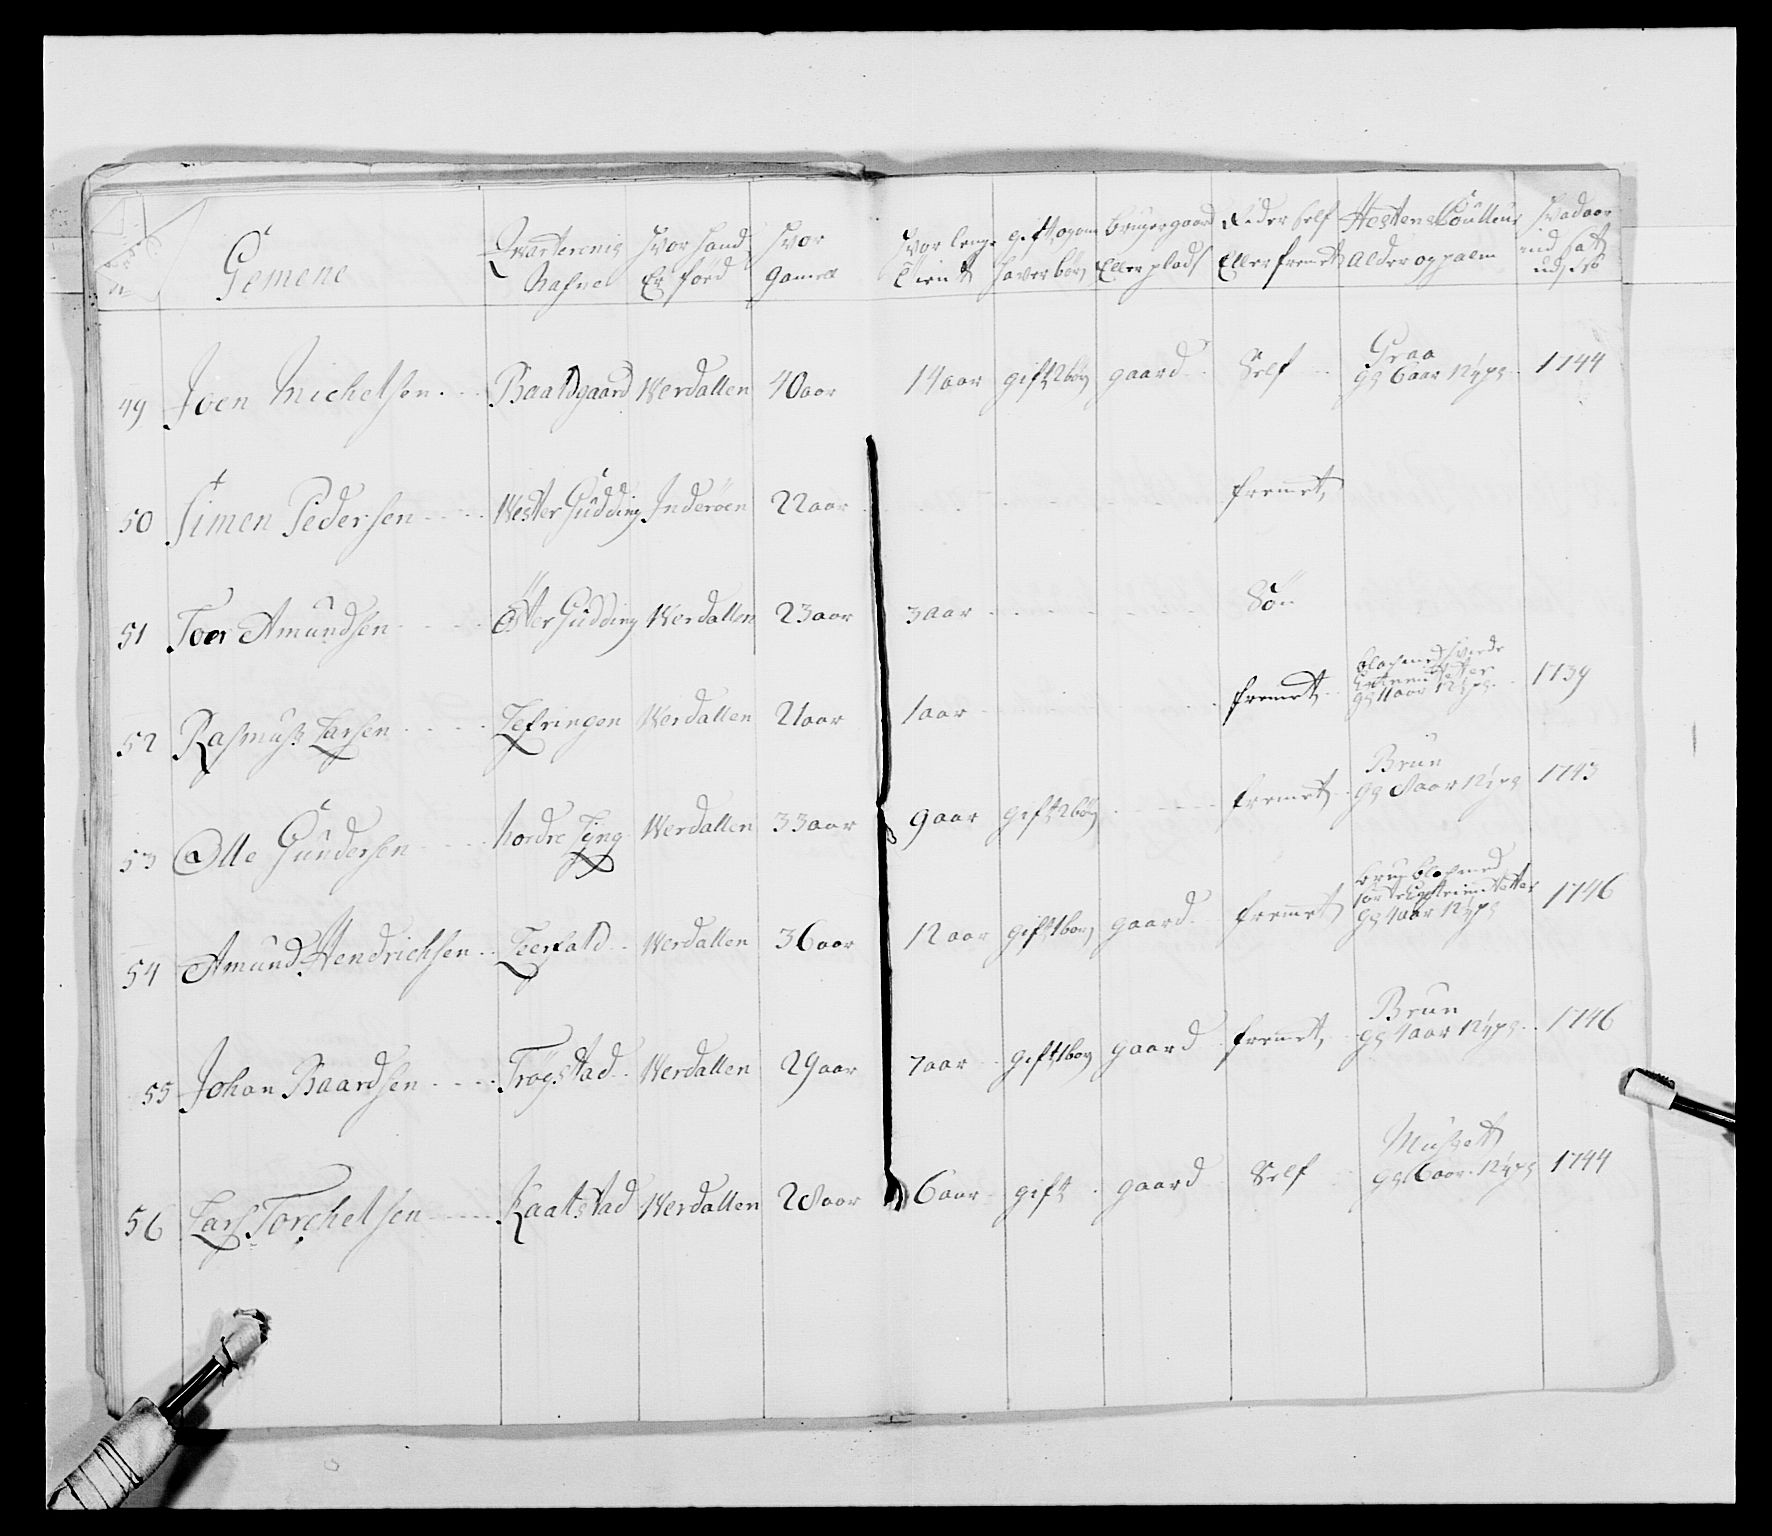 Gemene | Qvarterenis Nafne | Hvor Hand Er föed | Hvor gamell | Hvor lenge Tient | gift og om haver börn | bruger gaard Eller plads | Rider Self Eller fremet | Hestens Coulleur Alder og palm | Hvad aar ind satt
49 Joen Michelsen | Baaldgaard | Werdallen | 40 aar | 14 aar | gift 2 börn | gaard | Self | Graa 6 aar 12½ | 1744
50 Simen Pedersen | Wester Gudding | Inderöen | 22 aar | fremet
51 Toer Amundsen | Öster Gudding | Werdallen | 23 aar | 3 aar | Sön
52 Rasmus Larsen | Lefringen | Werdallen | 21 aar | 1 aar | fremet | 11 aar 12½ | 1739
53 Olle Gundersen | nordre Ling | Werdallen | 33 aar | 9 aar | gift 2 börn | fremet | Brun 8 aar 12½ | 1743
54 Amund Hendrichsen | Leerfald | Werdallen | 36 aar | 12 aar | gift 1 born | gaard | fremet | 4 aar 12½ | 1746
55 Johan Baardsen | Trögstad | Werdallen | 29 aar | 7 aar | gift 1 born | gaard | fremet | Brun 4 aar 12½ | 1746
56 Lars Torchelsen | Kaalstad | Werdallen | 28 aar | 6 aar | gift | gaard | Self | 6 aar 12½ | 1744